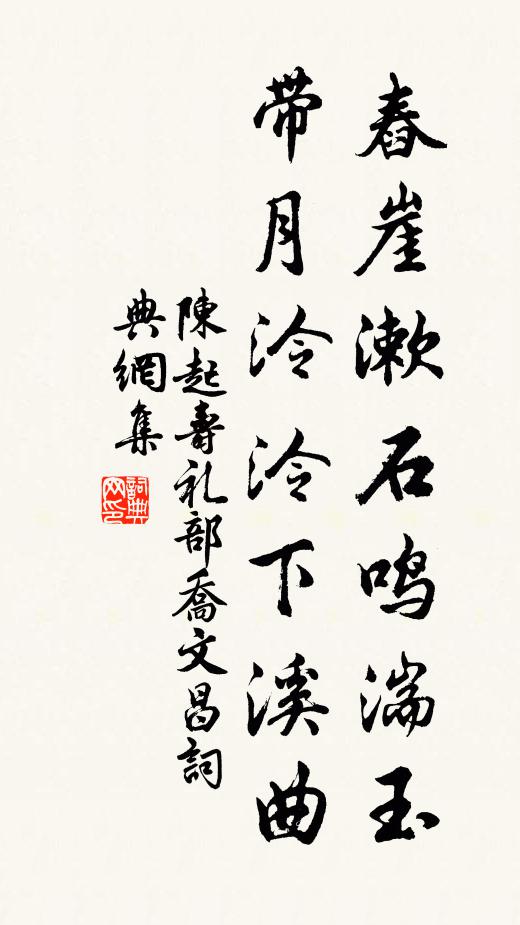 舂崖漱石鸣湍玉
带月泠泠下溪曲
陳起壽礼部喬文昌詞
典網集
詞典
网印